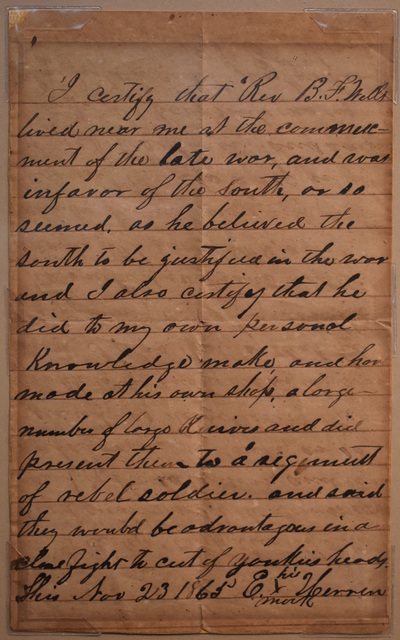 I certify that Rev B. F. Wells
lived near me at the commence-
ment of the late war, and was
infavor of the South, or so
seemed, as he believed the
south to be justified in the war
and I also certify that he
did to my own personal
Knowledge make, and have
made at his own shop, a large
number of large Knives and did
present them to a regiment
of rebel soldier. and said
they would be advantagous in a
close fight to cut of yankies heads.
This Nov 23 1865 E. his Herren
mark